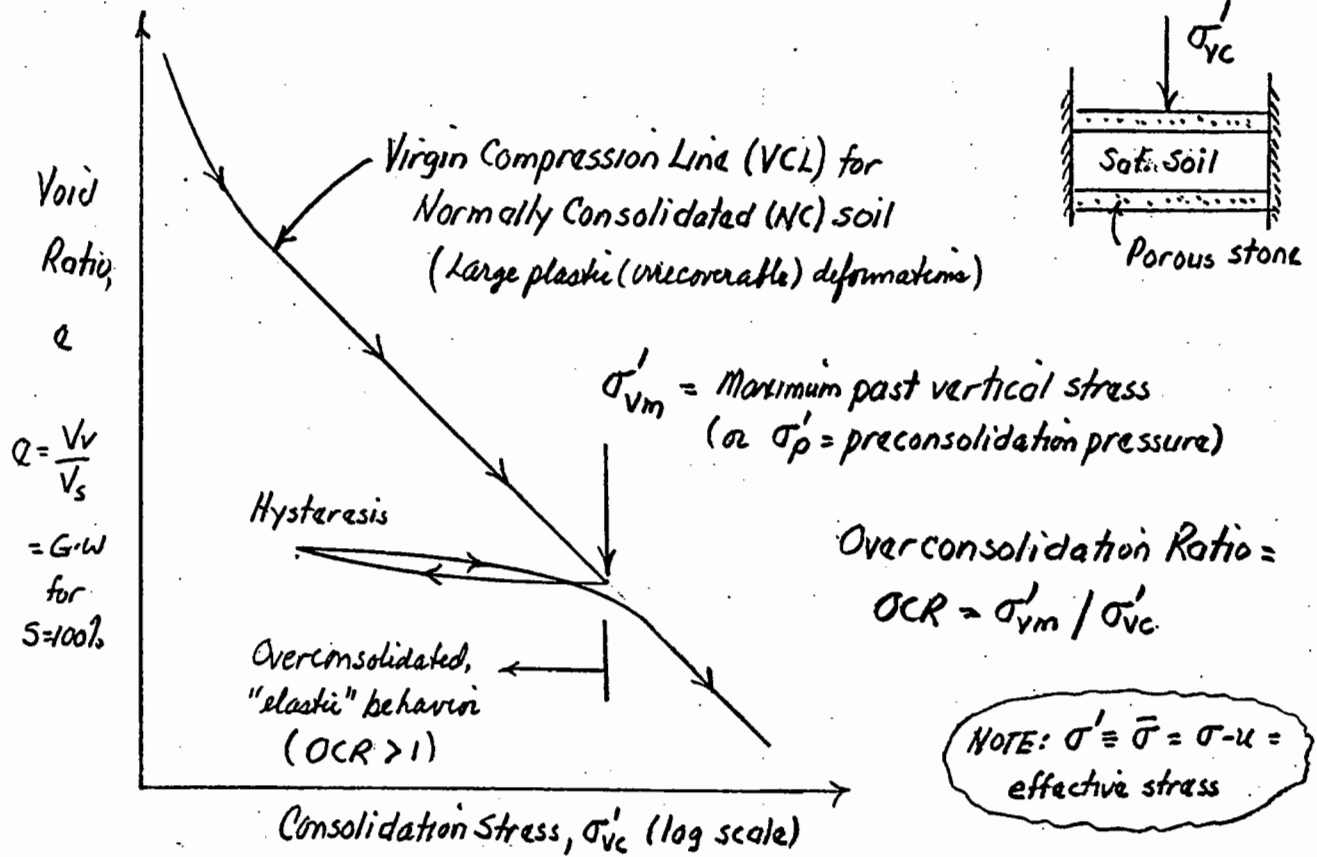 σ'vc
Sat. Soil
Porous stone
Virgin Compression Line (VCL) for
Normally Consolidated (NC) soil
(Large plastic (unrecoverable) deformations)
Void
Ratio,
e
e = Vv/Vs
= G·w
for
S=100%
σ'vm = Maximum past vertical stress
(or σ'p = preconsolidation pressure)
Hysteresis
Overconsolidation Ratio =
OCR = σ'vm / σ'vc
Overconsolidated,
"elastic" behavior
(OCR > 1)
NOTE: σ' ≡ σ̄ = σ-u =
effective stress
Consolidation Stress, σ'vc (log scale)